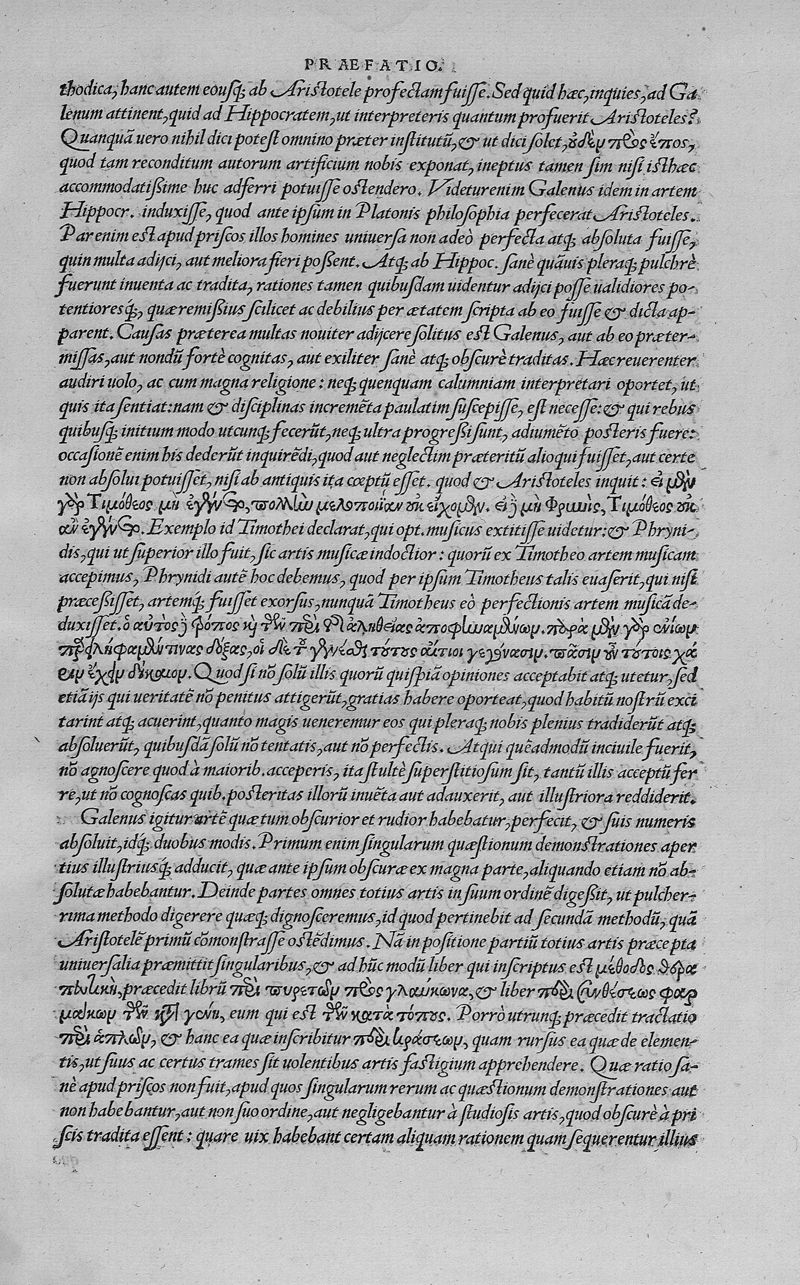 PRAEFATIO.
thodica, hanc autem eousq; ab Aristotele profectam fuisse. Sed quid hæc, inquies, ad Ga
lenum attinent, quid ad Hippocratem, ut interpreteris quantum profuerit Aristoteles?
Quanquã uero nihil dici potest omnino præter institutũ, & ut dici solet, οὐδὲν πρὸς ἔπος,
quod tam reconditum autorum artificium nobis exponat, ineptus tamen sim nisi isthæc
accommodatißime huc adferri potuisse ostendero. Videtur enim Galenus idem in artem
Hippocr. induxisse, quod ante ipsum in Platonis philosophia perfecerat Aristoteles.
Par enim est apud priscos illos homines uniuersa non adeò perfecta atq; absoluta fuisse,
quin multa adijci, aut meliora fieri poßent. Atq; ab Hippoc. sanè quãuis pleraq; pulchrè
fuerunt inuenta ac tradita, rationes tamen quibusdam uidentur adijci posse ualidiores po-
tentioresq́;, quæ remißius scilicet ac debilius per ætatem scripta ab eo fuisse & dicta ap-
parent. Causas præterea multas nouiter adijcere solitus est Galenus, aut ab eo præter-
missas, aut nondũ fortè cognitas, aut exiliter sanè atq; obscurè traditas. Hæc reuerenter
audiri uolo, ac cum magna religione: neq; quenquam calumniam interpretari oportet, ut
quis ita sentiat: nam & disciplinas incremẽta paulatim suscepisse, est necesse: & qui rebus
quibusq; initium modo utcunq; fecerũt, neq; ultra progreßi sunt, adiumẽto posteris fuere:
occasionẽ enim his dederũt inquirẽdi, quod aut neglectim præteritũ alioqui fuisset, aut certe
non absolui potuisset, nisi ab antiquis ita cœptũ esset. quod & Aristoteles inquit: εἰ μὲν
γὰρ Τιμόθεος μὴ ἐγένετο, πολλὴν μελοποιΐαν οὐκ εἴχομεν. εἰ δὲ μὴ Φρύνις, Τιμόθεος οὐκ
ἂν ἐγένετο. Exemplo id Timothei declarat, qui opt. musicus extitisse uidetur: & Phryni-
dis, qui ut superior illo fuit, sic artis musicæ indoctior: quorũ ex Timotheo artem musicam
accepimus, Phrynidi autẽ hoc debemus, quod per ipsum Timotheus talis euaserit, qui nisi
præceßisset, artemq; fuisset exorsus, nunquã Timotheus eò perfectionis artem musicã de-
duxisset. ὁ αὐτὸς δὲ τρόπος καὶ τῶν περὶ τῆς ἀληθείας ἀποφηναμένων. παρὰ μὲν γὰρ ἐνίων
παρειλήφαμέν τινας δόξας, οἱ δὲ τοῦ γενέσθαι τούτους αἴτιοι γεγόνασιν. πᾶσιν οὖν τούτοις χά
ριν ἔχειν δίκαιον. Quod si nõ solũ illis quorũ quispiã opiniones acceptabit atq; utetur, sed
etiã ijs qui ueritatẽ nõ penitus attigerũt, gratias habere oporteat, quod habitũ nostrũ exci
tarint atq; acuerint, quanto magis ueneremur eos qui pleraq; nobis plenius tradiderũt atq;
absoluerũt, quibusdã solũ nõ tentatis, aut nõ perfectis. Atqui quẽadmodũ inciuile fuerit,
nõ agnoscere quod à maiorib. acceperis, ita stultè superstitiosum sit, tantũ illis acceptũ fer
re, ut nõ cognoscas quib. posteritas illorũ inuẽta aut adauxerit, aut illustriora reddiderit.
Galenus igitur artẽ quæ tum obscurior et rudior habebatur, perfecit, & suis numeris
absoluit, idq́; duobus modis. Primum enim singularum quæstionum demonstrationes aper
tius illustriusq́; adducit, quæ ante ipsum obscuræ ex magna parte, aliquando etiam nõ ab-
solutæ habebantur. Deinde partes omnes totius artis in suum ordinẽ digeßit, ut pulcher-
rima methodo digerere quæq; dignosceremus, id quod pertinebit ad secundã methodũ, quã
Aristotelẽ primũ cõmonstrasse ostẽdimus. Nã in positione partiũ totius artis præcepta
uniuersalia præmittit singularibus, & ad hũc modũ liber qui inscriptus est μέθοδος θερα
πευτικὴ, præcedit librũ περὶ πυρετῶν πρὸς γλαύκωνα, & liber περὶ συνθέσεως φαρ
μάκων τῶν κατὰ γένη, eum qui est τῶν κατὰ τόπους. Porrò utrunq; præcedit tractatio
περὶ ἁπλῶν, & hanc ea quæ inscribitur περὶ κράσεων, quam rursus ea quæ de elemen-
tis, ut suus ac certus trames sit uolentibus artis fastigium apprehendere. Quæ ratio sa-
nè apud priscos non fuit, apud quos singularum rerum ac quæstionum demonstrationes aut
non habebantur, aut non suo ordine, aut negligebantur à studiosis artis, quod obscurè à pri
scis tradita essent: quare uix habebant certam aliquam rationem quam sequerentur illius